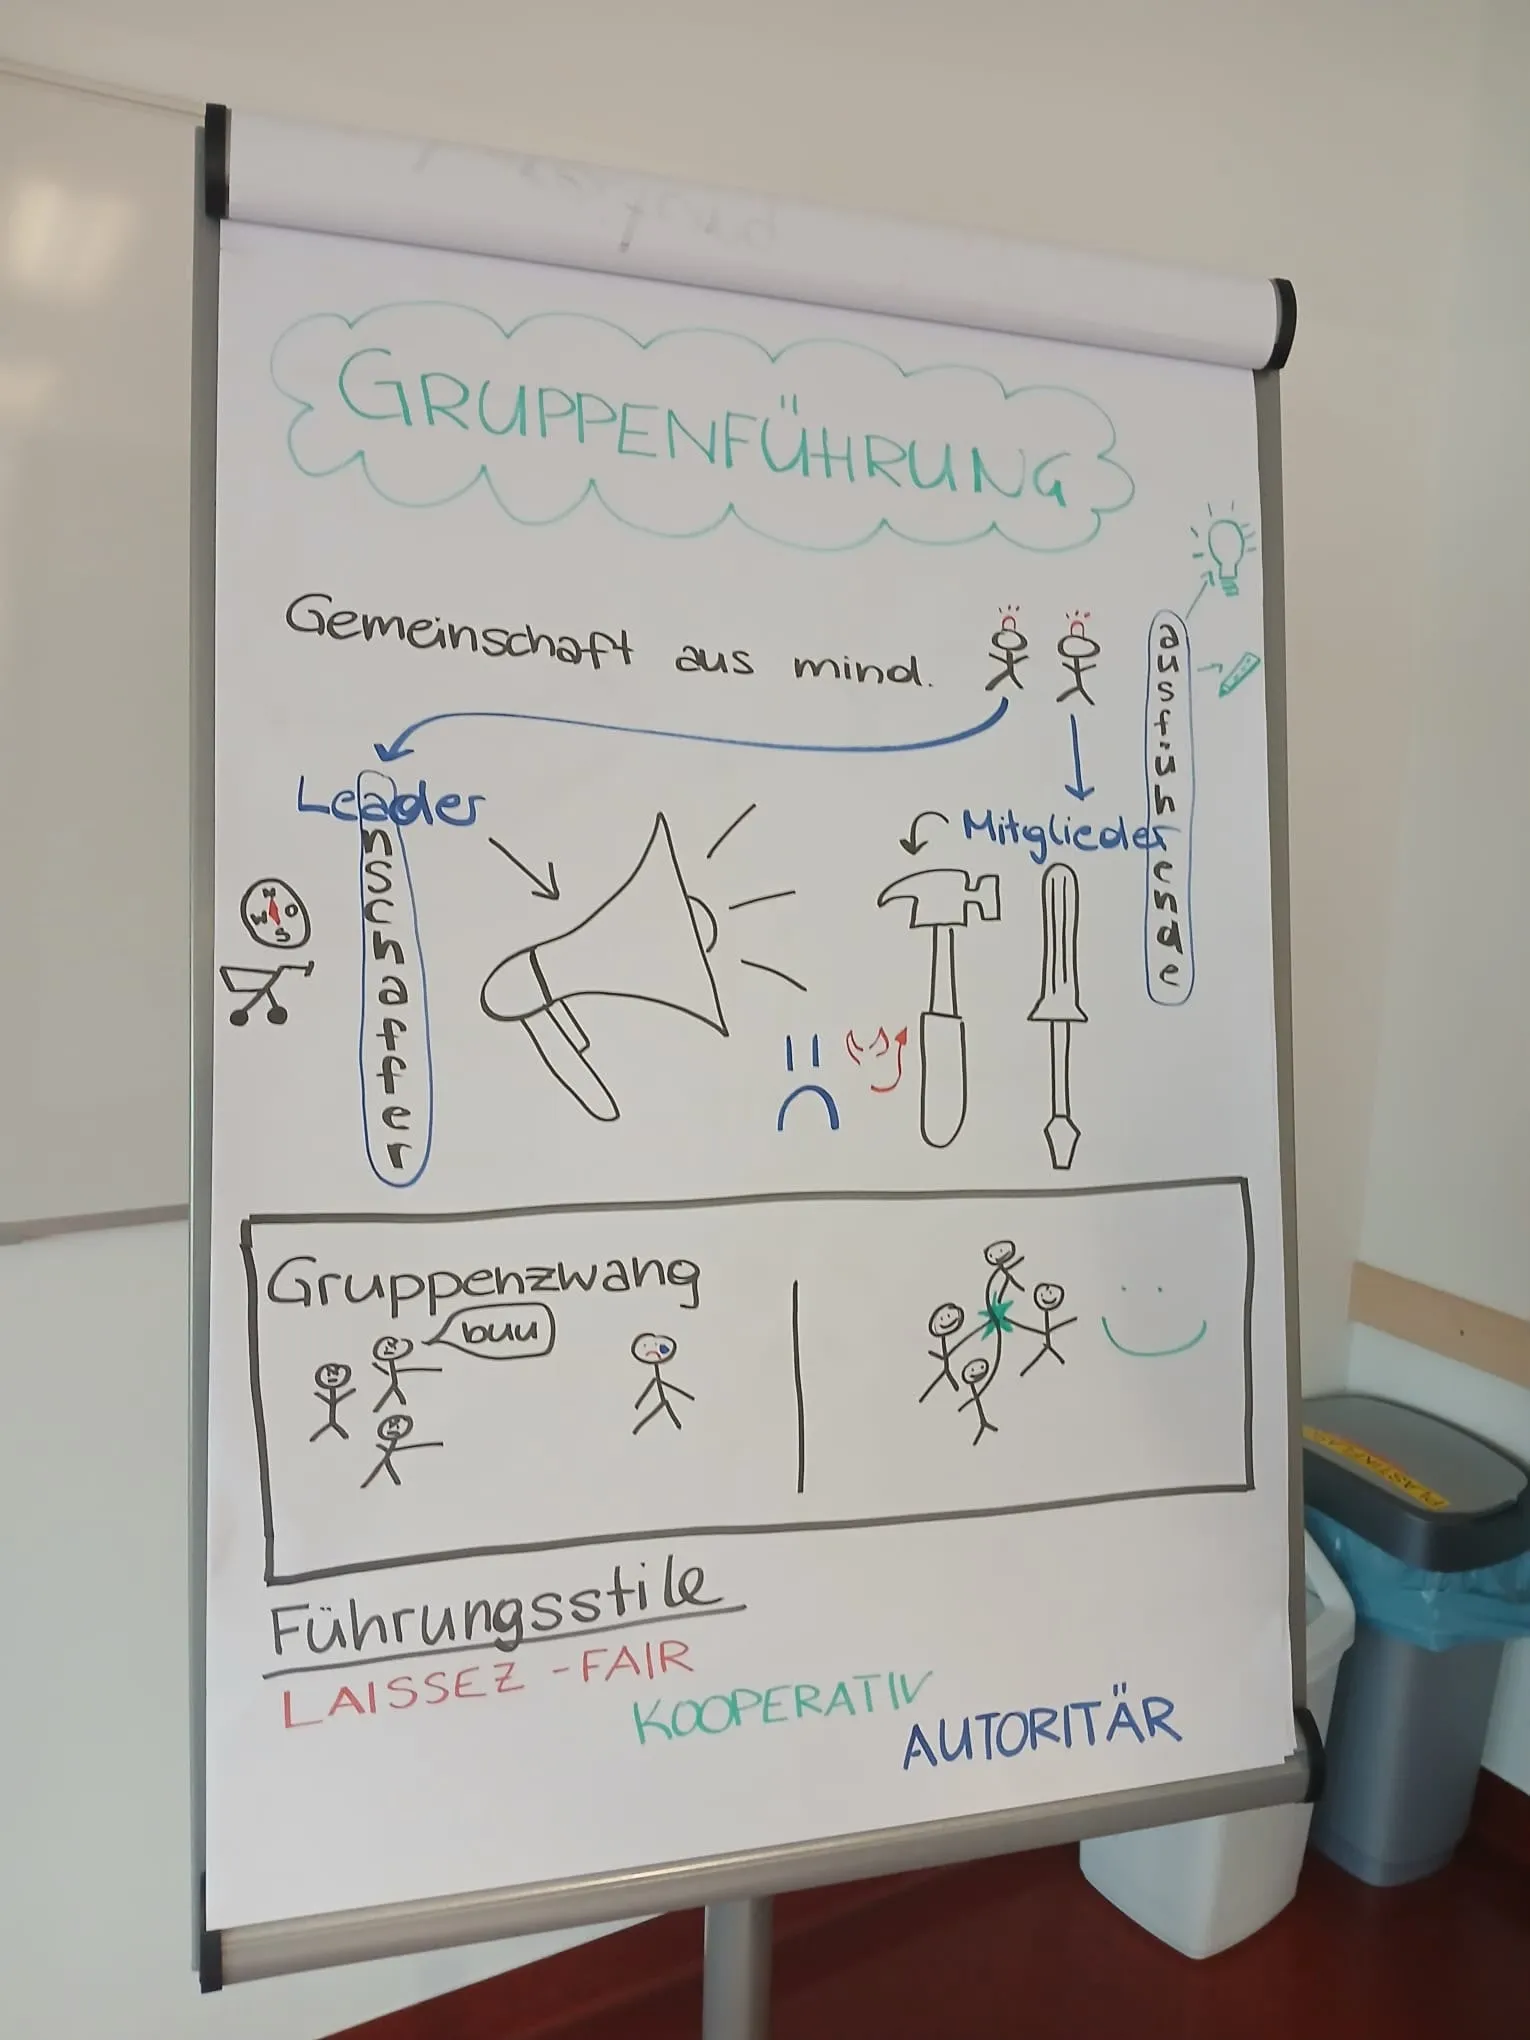 GRUPPENFÜHRUNG
Gemeinschaft aus mind.
Leader
anschaffer
Mitglieder
ausführende
N
W O
S
Gruppenzwang
buu
Führungsstile
LAISSEZ-FAIR
KOOPERATIV
AUTORITÄR